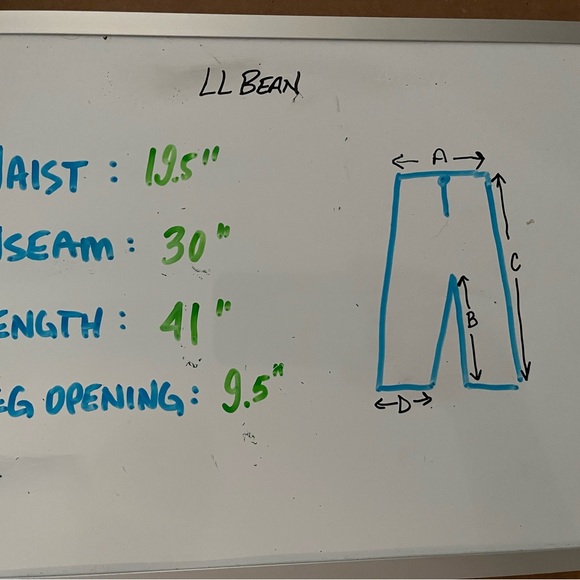 LL BEAN
WAIST : 19.5"
NSEAM : 30"
ENGTH : 41"
EG OPENING : 9.5"
A
C
B
D